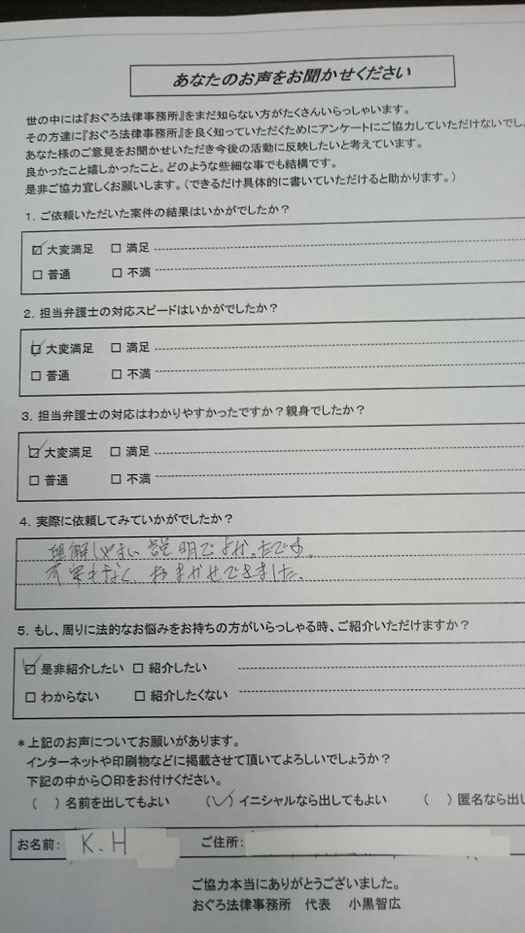 あなたのお声をお聞かせください
世の中には『おぐろ法律事務所』をまだ知らない方がたくさんいらっしゃいます。
その方達に『おぐろ法律事務所』を良く知っていただくためにアンケートにご協力していただけないでし
あなた様のご意見をお聞かせいただき今後の活動に反映したいと考えています。
良かったこと嬉しかったこと。どのような些細な事でも結構です。
是非ご協力宜しくお願いします。（できるだけ具体的に書いていただけると助かります。）
1．ご依頼いただいた案件の結果はいかがでしたか？
☑ 大変満足 □ 満足
□ 普通 □ 不満
2．担当弁護士の対応スピードはいかがでしたか？
☑ 大変満足 □ 満足
□ 普通 □ 不満
3．担当弁護士の対応はわかりやすかったですか？親身でしたか？
☑ 大変満足 □ 満足
□ 普通 □ 不満
4．実際に依頼してみていかがでしたか？
理解しやすい説明でよかったです。
不安もなく、おまかせできました。
5．もし、周りに法的なお悩みをお持ちの方がいらっしゃる時、ご紹介いただけますか？
☑ 是非紹介したい □ 紹介したい
□ わからない □ 紹介したくない
＊上記のお声についてお願いがあります。
インターネットや印刷物などに掲載させて頂いてよろしいでしょうか？
下記の中から○印をお付けください。
（ ）名前を出してもよい （✓）イニシャルなら出してもよい （ ）匿名なら出
お名前： K.H ご住所：
ご協力本当にありがとうございました。
おぐろ法律事務所 代表 小黒智広